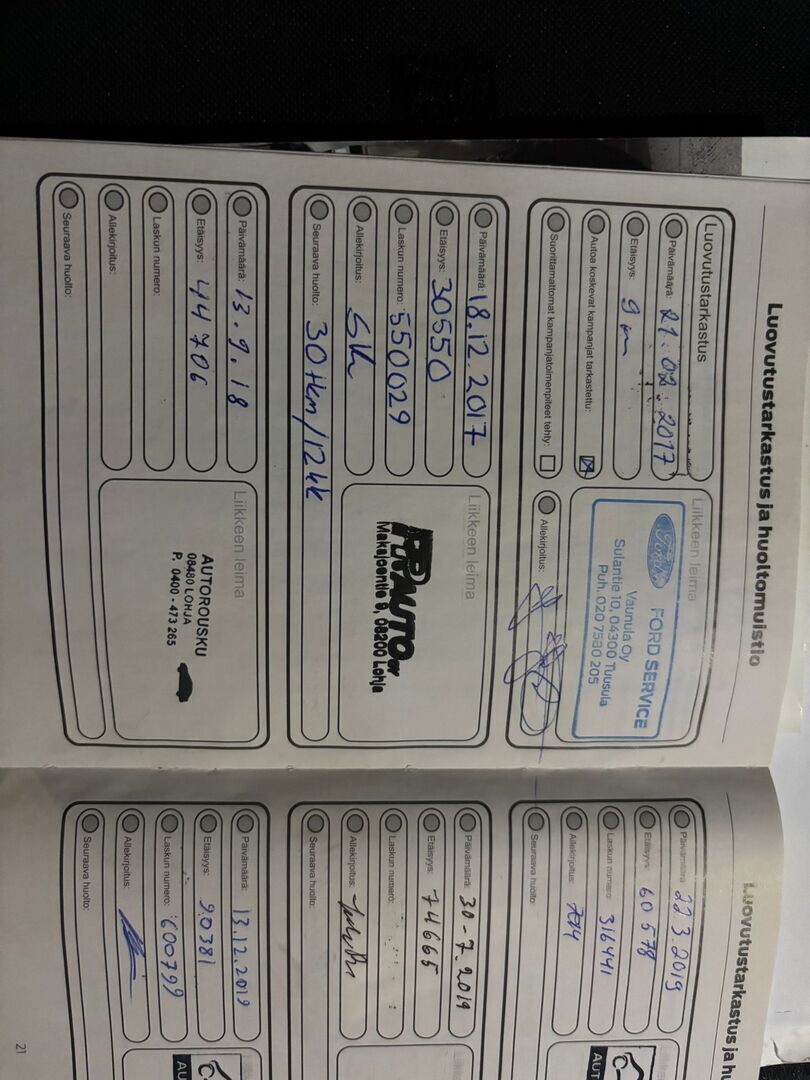 Luovutustarkastus ja huoltomuistio
Luovutustarkastus
Päivämäärä: 21.02.2017
Etäisyys: 9 m
Autoa koskevat kampanjat tarkastettu:
Suorittamattomat kampanjatoimenpiteet tehty:
Liikkeen leima
Ford
FORD SERVICE
Vaunula Oy
Sulantie 10, 04300 Tuusula
Puh. 020 7580 205
Allekirjoitus:
Päivämäärä: 18.12.2017
Etäisyys: 30550
Laskun numero: 550029
Allekirjoitus: SK
Seuraava huolto: 30 tkm/12kk
Liikkeen leima
AUTO
Makajoentie 9, 08200 Lohja
Päivämäärä: 13.9.18
Etäisyys: 44706
Laskun numero:
Allekirjoitus:
Seuraava huolto:
Liikkeen leima
AUTOROUSKU
08480 LOHJA
P. 0400 - 473 265
Luovutustarkastus ja h
Päivämäärä: 22.3.2019
Etäisyys: 60578
Laskun numero: 316441
Allekirjoitus:
Seuraava huolto:
AUT
Päivämäärä: 30-7.2019
Etäisyys: 74665
Laskun numero:
Allekirjoitus:
Seuraava huolto:
Päivämäärä: 13.12.2019
Etäisyys: 90381
Laskun numero: 600799
Allekirjoitus:
Seuraava huolto:
AU
21